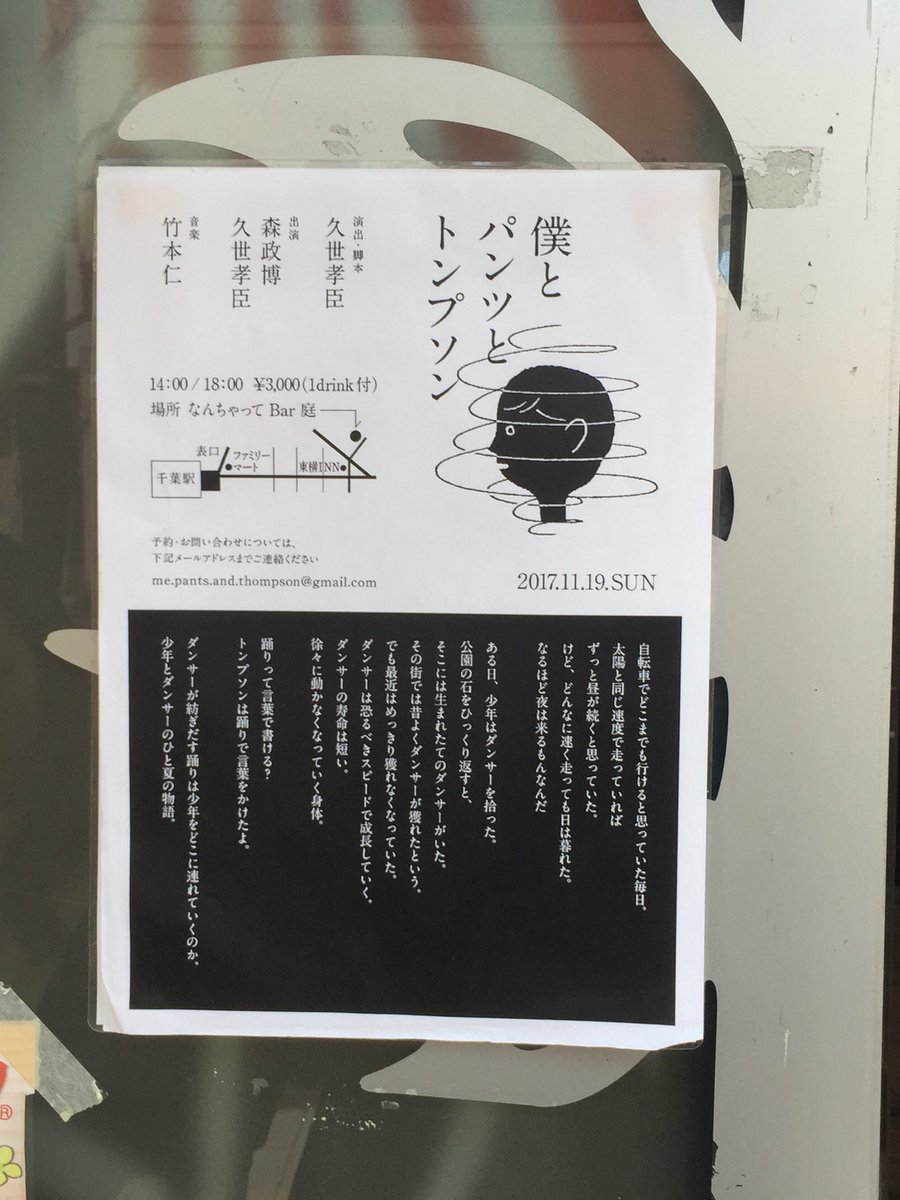 僕と
パンツと
トンプソン
演出・脚本
久世孝臣
出演
森政博
久世孝臣
音楽
竹本仁
14:00 / 18:00 ¥3,000(1drink付)
場所 なんちゃって Bar 庭
表口
ファミリー
マート
東横INN
千葉駅
予約・お問い合わせについては、
下記メールアドレスまでご連絡ください
me.pants.and.thompson@gmail.com
2017.11.19.SUN
自転車でどこまでも行けると思っていた毎日。
太陽と同じ速度で走っていれば
ずっと昼が続くと思っていた。
けど、どんなに速く走っても日は暮れた。
なるほど夜は来るもんなんだ
ある日、少年はダンサーを拾った。
公園の石をひっくり返すと、
そこには生まれたてのダンサーがいた。
その街では昔よくダンサーが獲れたという。
でも最近はめっきり獲れなくなっていた。
ダンサーは恐るべきスピードで成長していく。
ダンサーの寿命は短い。
徐々に動かなくなっていく身体。
踊りって言葉で書ける?
トンプソンは踊りで言葉をかけたよ。
ダンサーが紡ぎだす踊りは少年をどこに連れていくのか。
少年とダンサーのひと夏の物語。
®